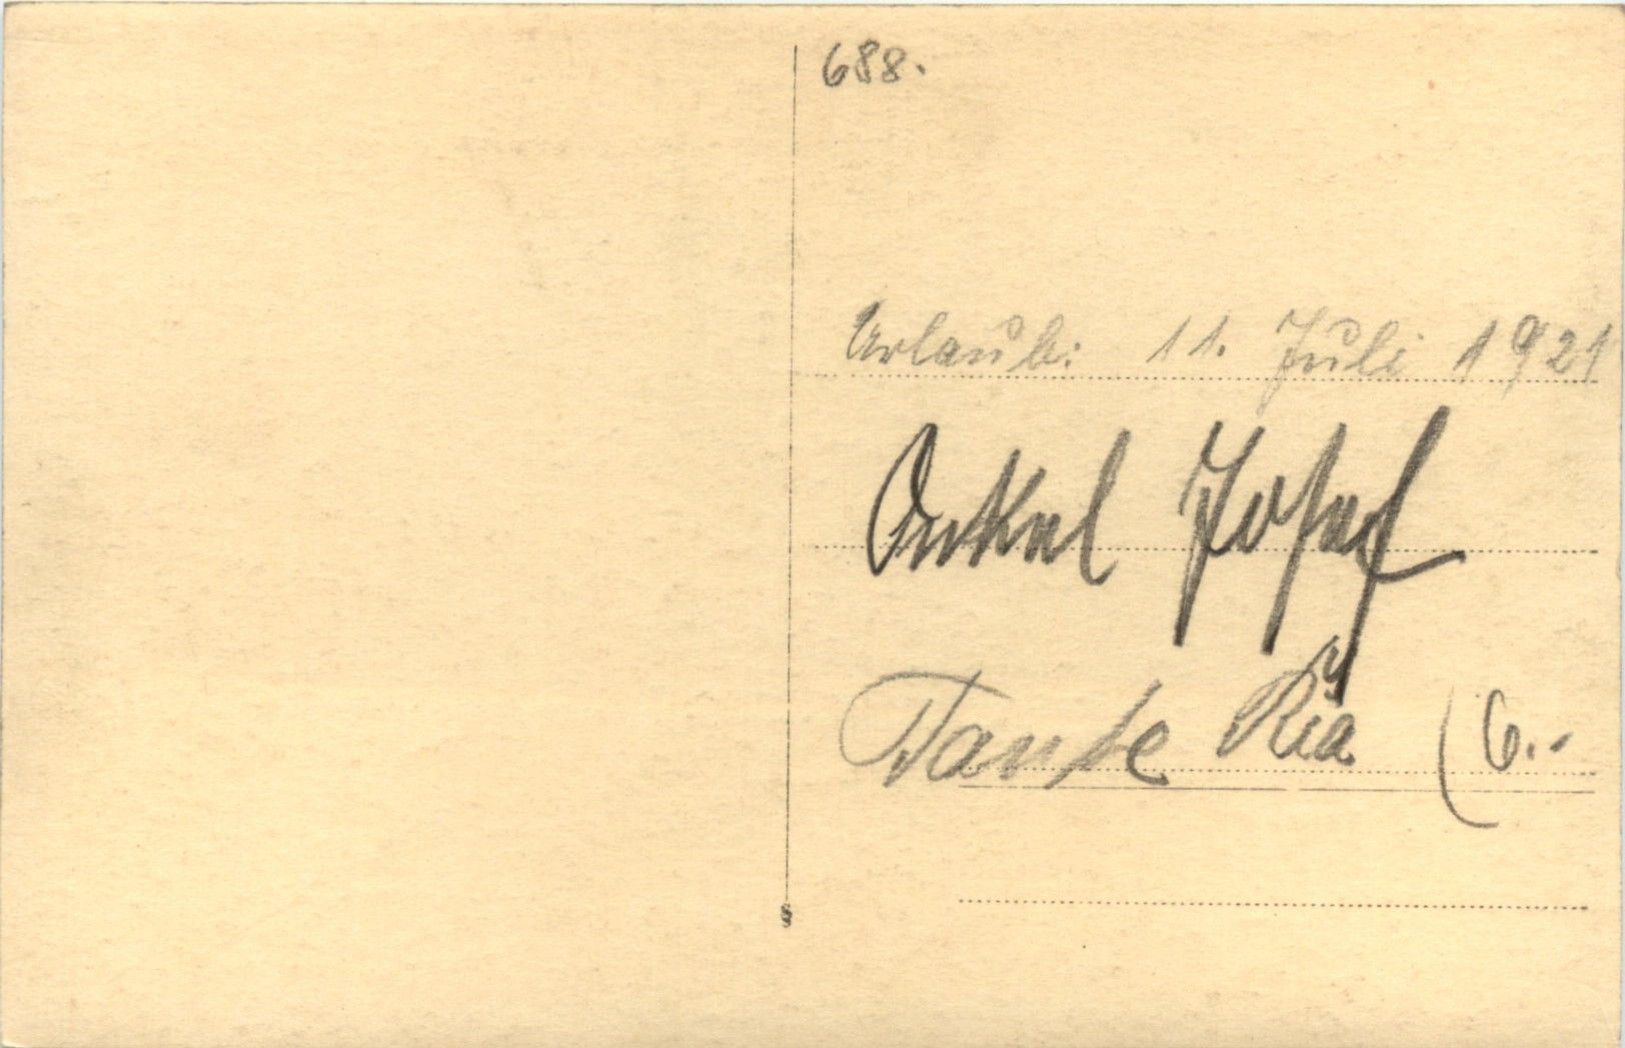 688.
Urlaub: 11. Juli 1921
Onkel Josef
Tante Ria (6.-